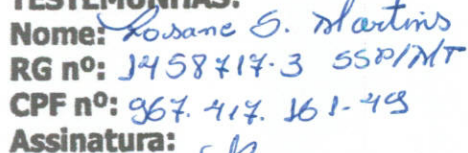 TESTEMUNHAS:
Nome: Losane S. Martins
RG nº: 1458717-3 SSP/MT
CPF nº: 967.417.161-49
Assinatura: